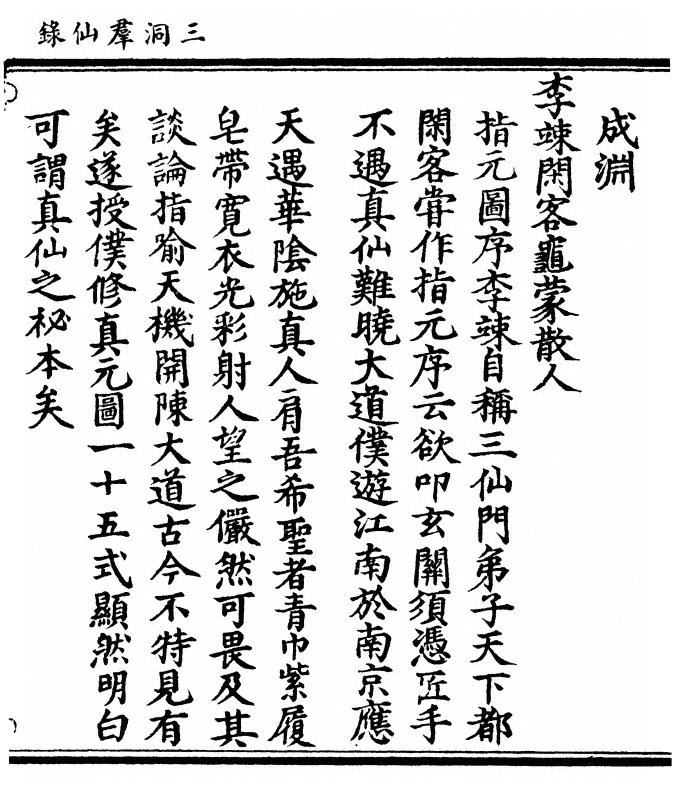 三洞羣仙錄
成淵
李竦閑客龜蒙散人
指元圖序李竦自稱三仙門弟子天下都
閑客嘗作指元序云欲叩玄關須憑匠手
不遇真仙難曉大道僕遊江南於南京應
天遇華陰施真人肩吾希聖者青巾紫履
皂帶寬衣光彩射人望之儼然可畏及其
談論指喻天機開陳大道古今不特見有
矣遂授僕修真元圖一十五式顯然明白
可謂真仙之祕本矣